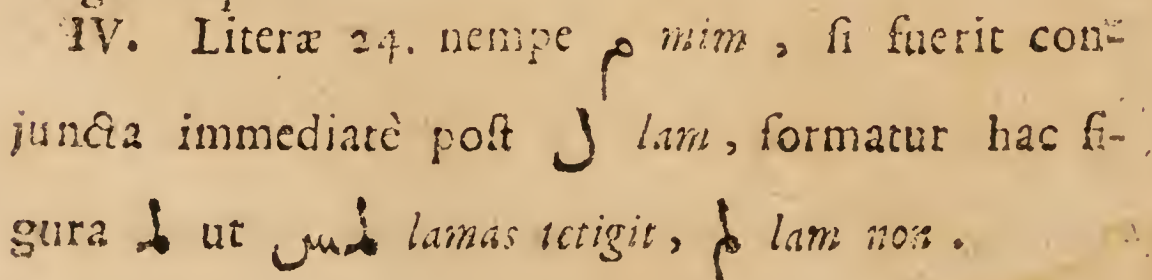 IV. Literæ 24. nempe م mim, ſi fuerit con-
juncta immediatè poſt ل lam, formatur hac fi-
gura لم ut لمس lamas tetigit, لم lam non.